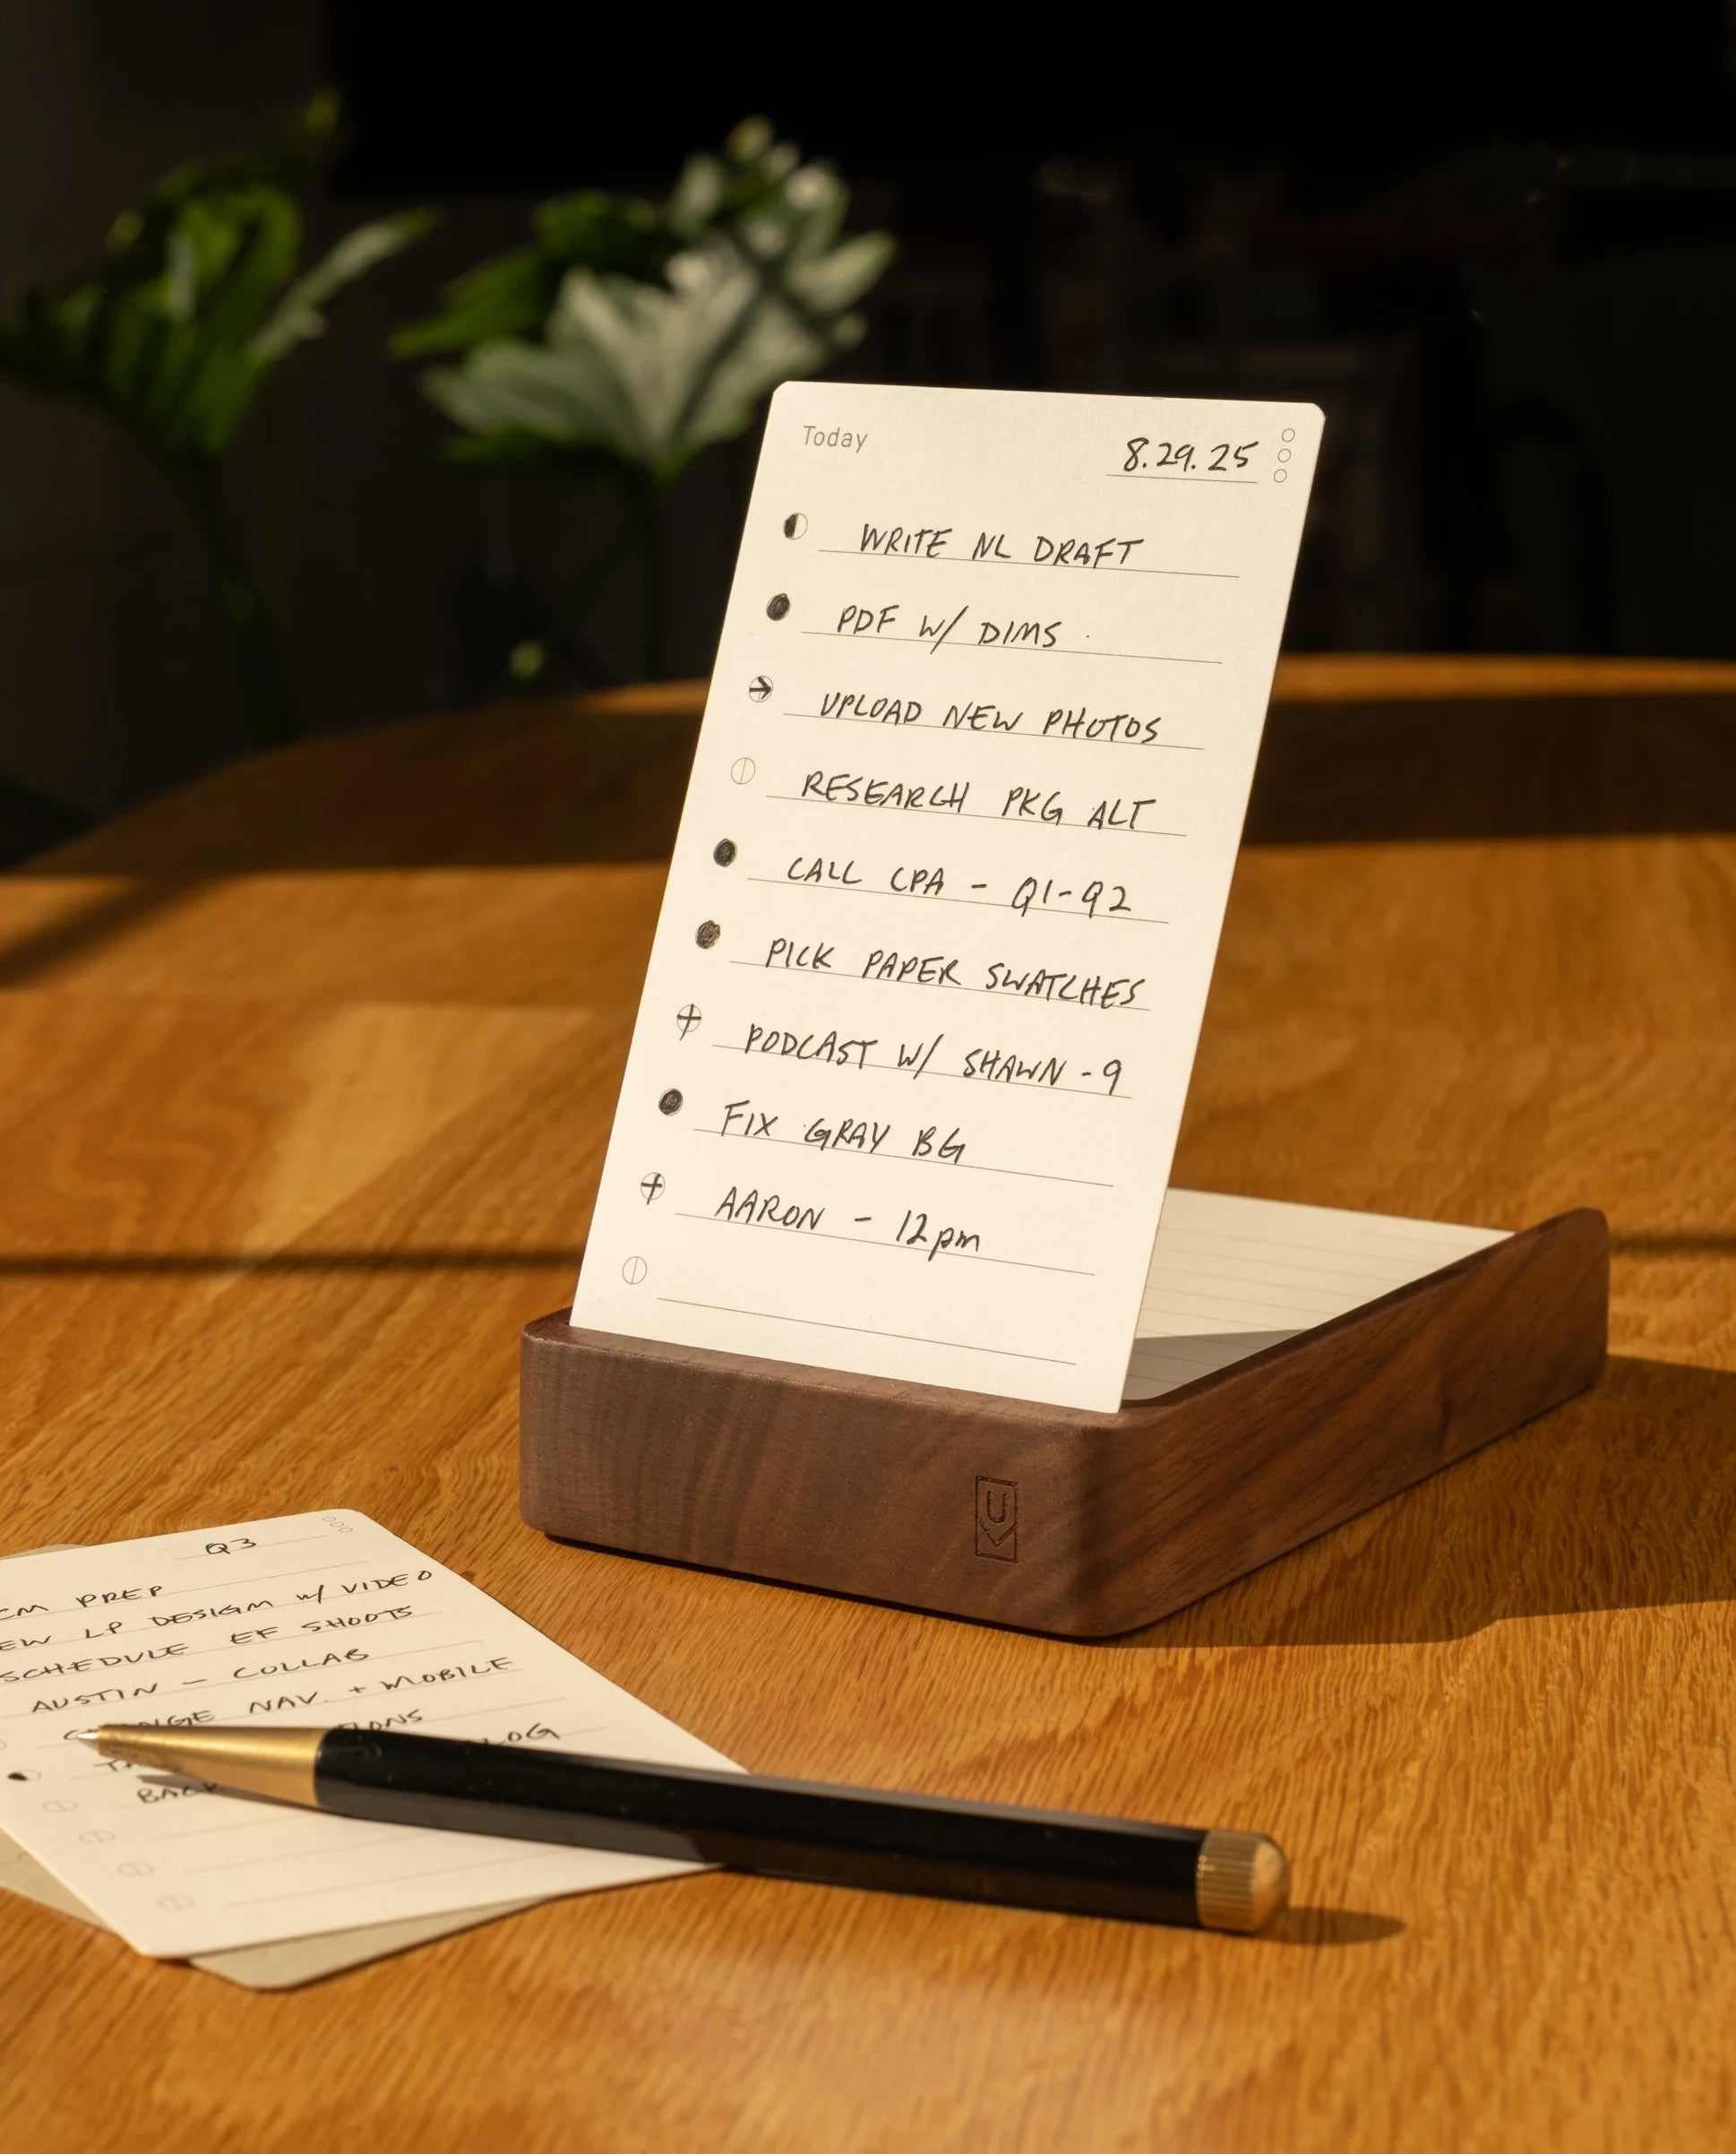 Today
8.29.25
WRITE NL DRAFT
PDF W/ DIMS
UPLOAD NEW PHOTOS
RESEARCH PKG ALT
CALL CPA - Q1-Q2
PICK PAPER SWATCHES
PODCAST W/ SHAWN - 9
FIX GRAY BG
AARON - 12pm
Q3
PREP
LP DESIGN w/ VIDEO
SCHEDULE EF SHOOTS
AUSTIN - COLLAB
NAV. + MOBILE